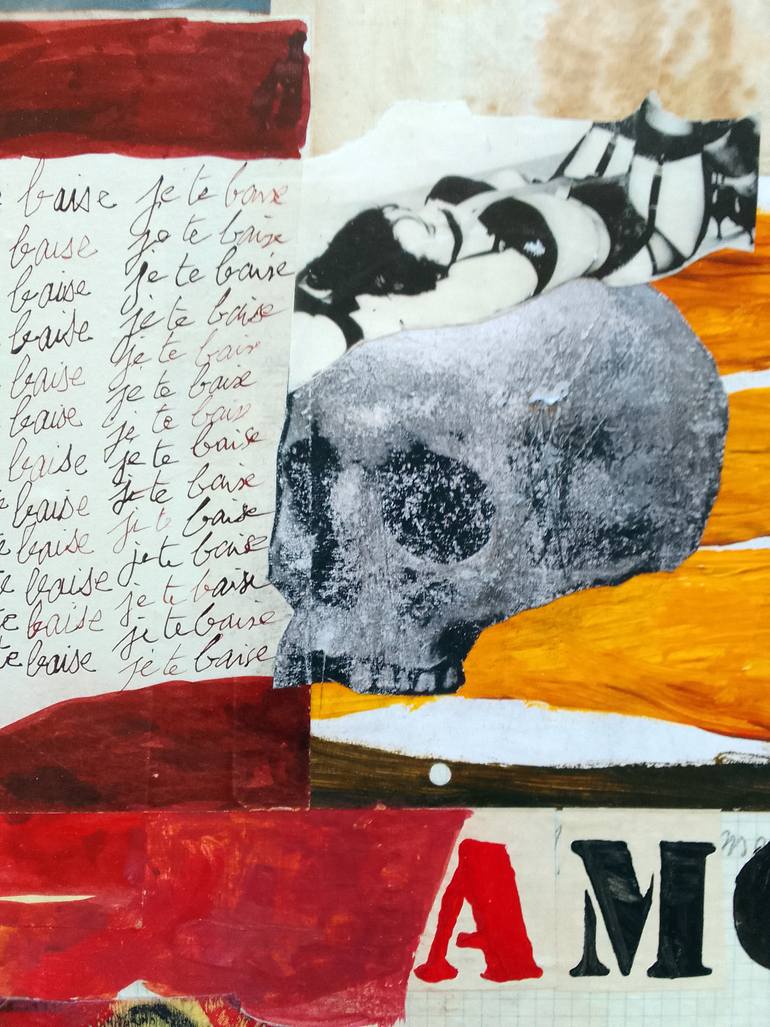 baise je te baise
baise je te baise
baise je te baise
baise je te baise
je te baise
baise je te baise
baise je te baise
je te baise
baise je te baise
baise je te baise
baise je te baise
te baise je te baise
te baise je te baise
te baise je te baise
AMO